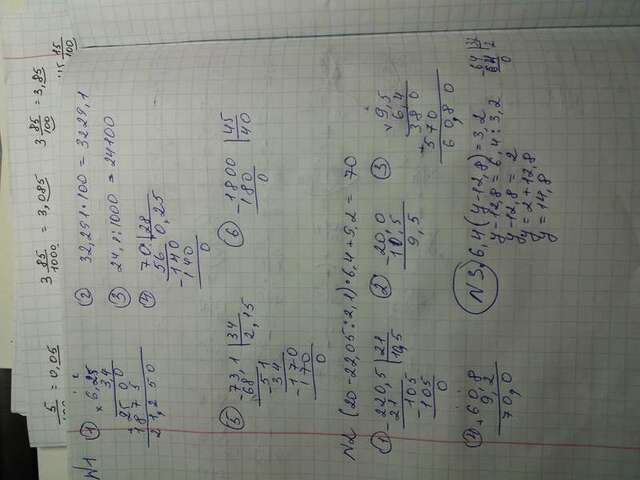 5/100 = 0,05 3 85/1000 = 3,085 3 85/100 = 3,85
15/100
N1 ① × 6,25
3,4
+ 25 00
1875
21,250
② 32,291·100 = 3229,1
③ 24,1:1000 = 24100
④ 70: 28
56 0,25
-140
140
0
⑤ -73,1 34
68 2,15
-51
34
-170
170
0
⑥ -1800 45
180 40
0
N2 (20-22,05:2,1)·6,4+9,2 = 70
① -220,5 21
21 10,5
-105
105
0
② -20,0
10,5
9,5
③ × 9,5
6,4
380
+570
60,80
④ +60,8
9,2
70,0
N3. 6,4(y-12,8) = 3,2
y-12,8 = 6,4:3,2
y-12,8 = 2
y = 2+12,8
y = 14,8
-64 32
64 2
0